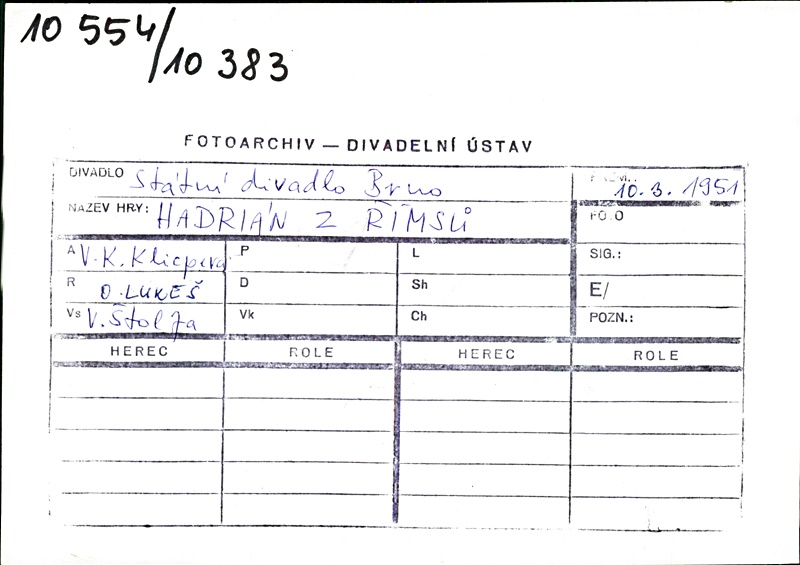 10 554/10 383
FOTOARCHIV — DIVADELNÍ ÚSTAV
DIVADLO Státní divadlo Brno
10.3.1951
NÁZEV HRY: HADRIÁN Z ŘÍMSŮ
FOTO
A V.K. Klicpera P L SIG.:
R O. LUKEŠ D Sh E/
Vs V. Štolfa Vk Ch POZN.:
HEREC ROLE HEREC ROLE